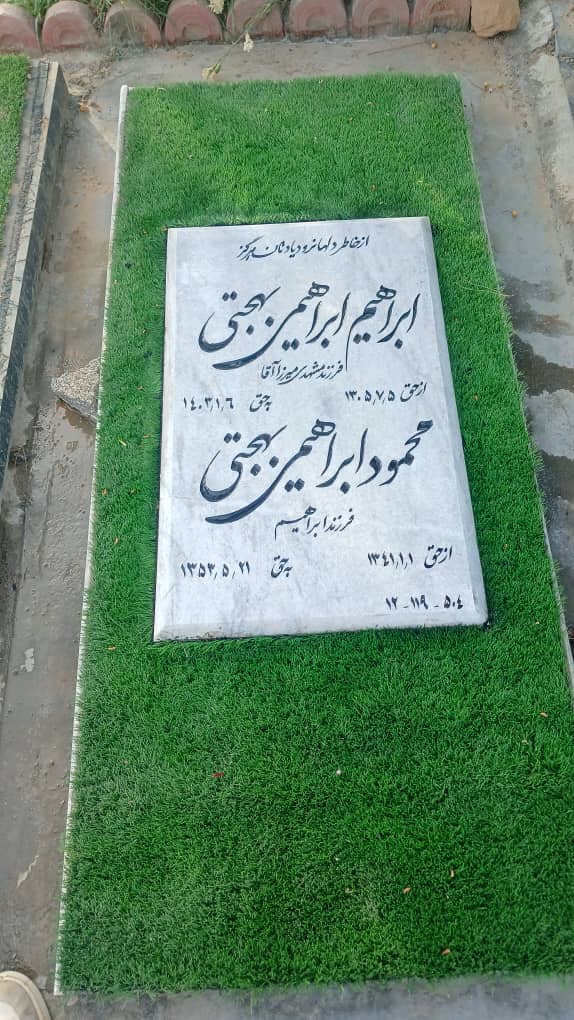 از خاطر دلها نرود یادتان هرگز
ابراهیم ابراهیمی بهجتی
فرزند مشهدی میرزا آقا
از حق ۱۳۰۵٫۷٫۵ به حق ۱۴۰۳٫۱٫۶
محمود ابراهیمی بهجتی
فرزند ابراهیم
از حق ۱۳۴۱٫۱٫۱ به حق ۱۳۵۳٫۵٫۲۱
۱۲ - ۱۱۹ - ۵۰۴